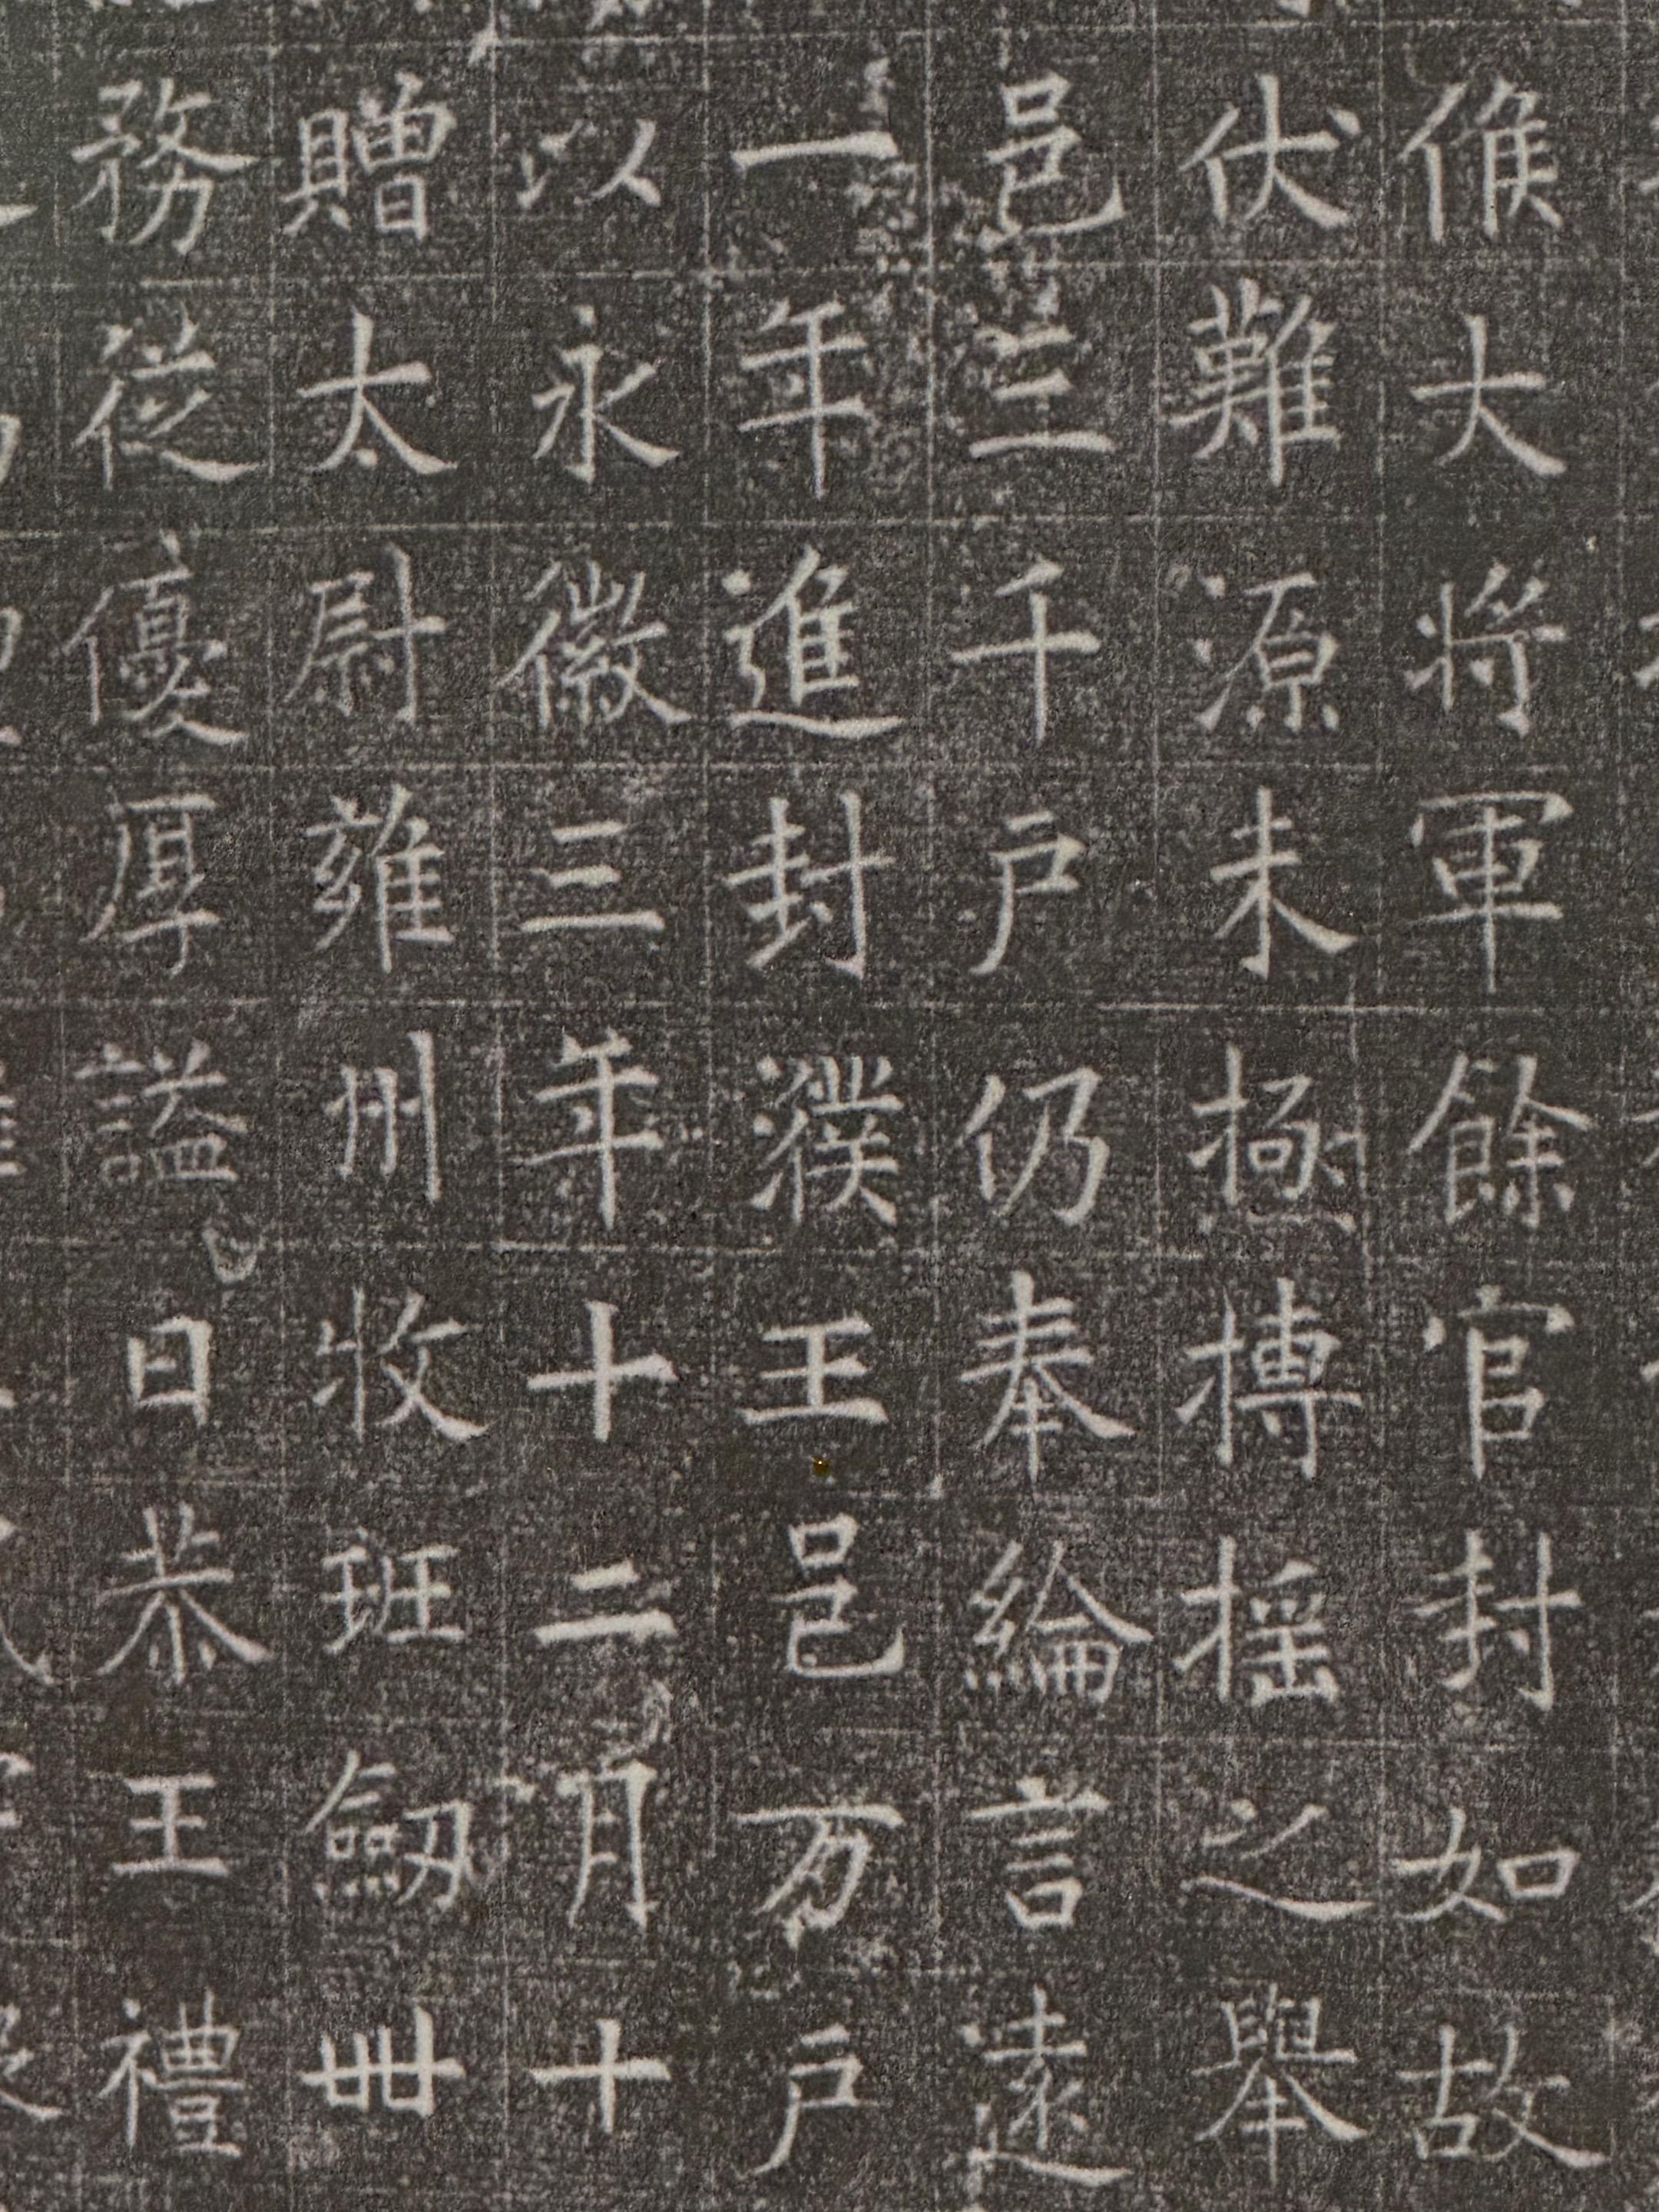 候大將軍餘官封如故
伏難源未極摶摇之舉
邑三千户仍奉綸言遠
一年進封濮王邑万户
以永徽三年十二月十
贈太尉雍州牧班劒卌
務從優厚謚曰恭王禮